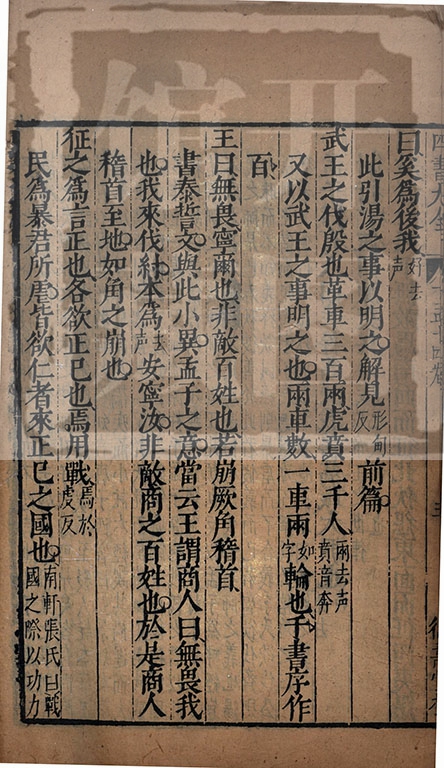 曰奚爲後我好去声
此引湯之事以明之解見形甸反前篇
武王之伐殷也革車三百兩虎賁三千人兩去声賁音奔
又以武王之事明之也兩車數一車兩如字輪也千書序作
百
王曰無畏寧爾也非敵百姓也若崩厥角稽首
書泰誓文與此小異孟子之意當云王謂商人曰無畏我
也我來伐紂本爲去声安寧汝非敵商之百姓也於是商人
稽首至地如角之崩也
征之爲言正也各欲正已也焉用戰焉於虔反
民爲暴君所虐皆欲仁者來正已之國也南軒張氏曰戰國之際以功力